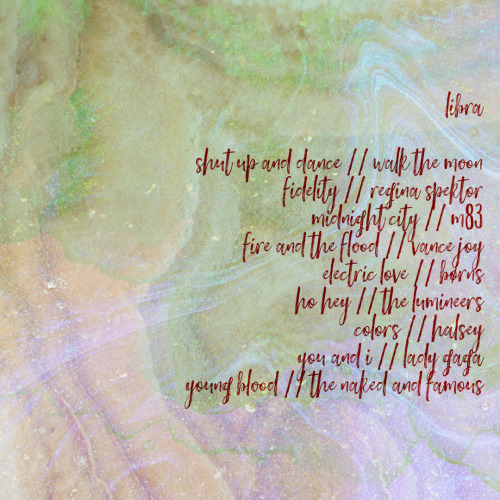 libra
shut up and dance // walk the moon
fidelity // regina spektor
midnight city // m83
fire and the flood // vance joy
electric love // børns
ho hey // the lumineers
colors // halsey
you and i // lady gaga
young blood // the naked and famous